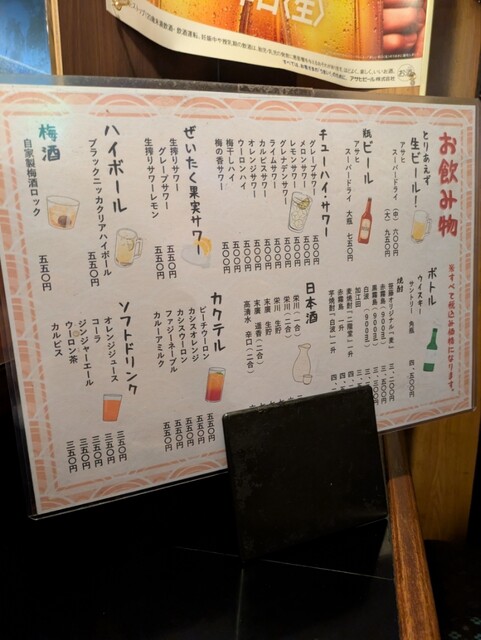 お飲み物
※すべて税込み価格になります。
とりあえず
生ビール！
アサヒ
スーパードライ
(中) 六〇〇円
(大) 九五〇円
瓶ビール
アサヒ
スーパードライ 大瓶 七五〇円
チューハイ・サワー
グレープサワー 五〇〇円
メロンサワー 五〇〇円
レモンサワー 五〇〇円
グレナデンサワー 五〇〇円
ライムサワー 五〇〇円
カルピスサワー 五〇〇円
オレンジサワー 五〇〇円
ウーロンハイ 五〇〇円
梅干しハイ 五〇〇円
梅の香サワー 五〇〇円
ぜいたく果実サワー
生搾りサワー
グレープサワー 五五〇円
生搾りサワーレモン 五五〇円
ハイボール
ブラックニッカクリアハイボール
五五〇円
梅酒
自家製梅酒ロック
五五〇円
ボトル
ウイスキー
サントリー 角瓶 四、五〇〇円
焼酎
赤霧島(900㎖)
黒霧島(900㎖)
白波(900㎖)
加江田
日本酒
栄川(一合)
栄川(二合)
栄川 生貯
末廣 生貯
高清水 辛口(二合)
カクテル
ピーチウーロン 五五〇円
カシスオレンジ 五五〇円
カシスウーロン 五五〇円
ファジーネーブル 五五〇円
カルーアミルク 五五〇円
ソフトドリンク
オレンジジュース 三五〇円
コーラ 三五〇円
ジンジャーエール 三五〇円
ウーロン茶 三五〇円
カルピス 三五〇円